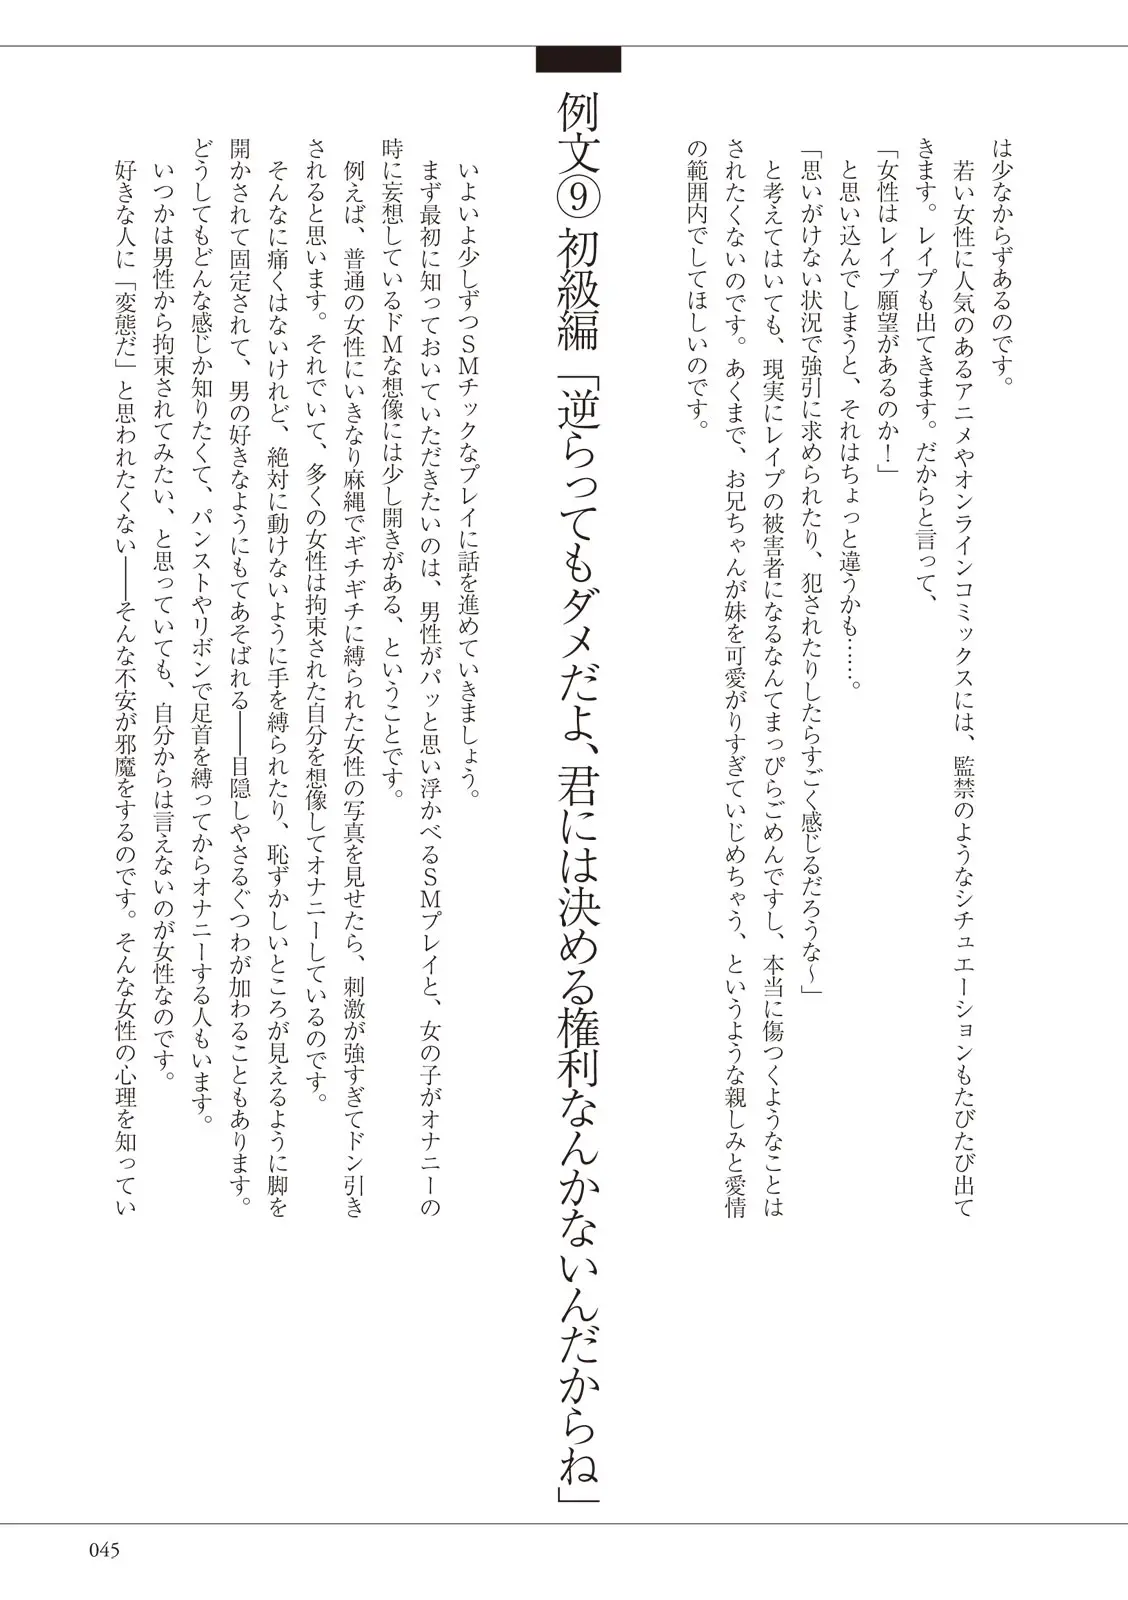 は少なからずあるのです。
若い女性に人気のあるアニメやオンラインコミックスには、監禁のようなシチュエーションもたびたび出て
きます。レイプも出てきます。だからと言って、
「女性はレイプ願望があるのか！」
と思い込んでしまうと、それはちょっと違うかも……。
「思いがけない状況で強引に求められたり、犯されたりしたらすごく感じるだろうな〜」
と考えてはいても、現実にレイプの被害者になるなんてまっぴらごめんですし、本当に傷つくようなことは
されたくないのです。あくまで、お兄ちゃんが妹を可愛がりすぎていじめちゃう、というような親しみと愛情
の範囲内でしてほしいのです。
例文⑨ 初級編「逆らってもダメだよ、君には決める権利なんかないんだからね」
いよいよ少しずつＳＭチックなプレイに話を進めていきましょう。
まず最初に知っておいていただきたいのは、男性がパッと思い浮かべるＳＭプレイと、女の子がオナニーの
時に妄想しているドＭな想像には少し開きがある、ということです。
例えば、普通の女性にいきなり麻縄でギチギチに縛られた女性の写真を見せたら、刺激が強すぎてドン引き
されると思います。それでいて、多くの女性は拘束された自分を想像してオナニーしているのです。
そんなに痛くはないけれど、絶対に動けないように手を縛られたり、恥ずかしいところが見えるように脚を
開かされて固定されて、男の好きなようにもてあそばれる――目隠しやさるぐつわが加わることもあります。
どうしてもどんな感じか知りたくて、パンストやリボンで足首を縛ってからオナニーする人もいます。
いつかは男性から拘束されてみたい、と思っていても、自分からは言えないのが女性なのです。
好きな人に「変態だ」と思われたくない――そんな不安が邪魔をするのです。そんな女性の心理を知ってい
045